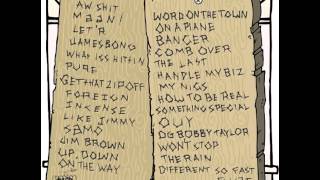 AW SHIT
MAAN!
LET'R
JAMES BOND
WHAT ISS HITTIN
PURE
GET THAT ZIP OFF
FOREIGN
INCENSE
LIKE JIMMY
SAMO
JIM BROWN
UP, DOWN
ON THE WAY
WORD ON THE TOWN
ON A PLANE
BANGER
COMB OVER
THE LAST
HANDLE MY BIZ
MY NIGS
HOW TO BE REAL
SOMETHING SPECIAL
GUY
DG BOBBY TAYLOR
WON'T STOP
THE RAIN
DIFFERENT SO FAST